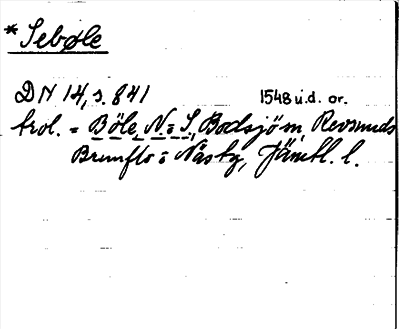 * Sebøle
DN 14, s. 841 1548 u.d. or.
trol. = Böle, N o S, Bodsjö m, Revsunds
Brunflo o Näsby, Jämtl. l.